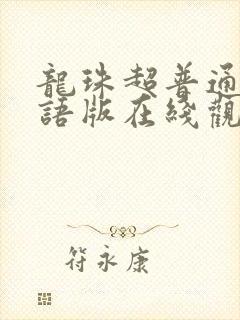 龍珠超普通
語版在綫觀
符永康